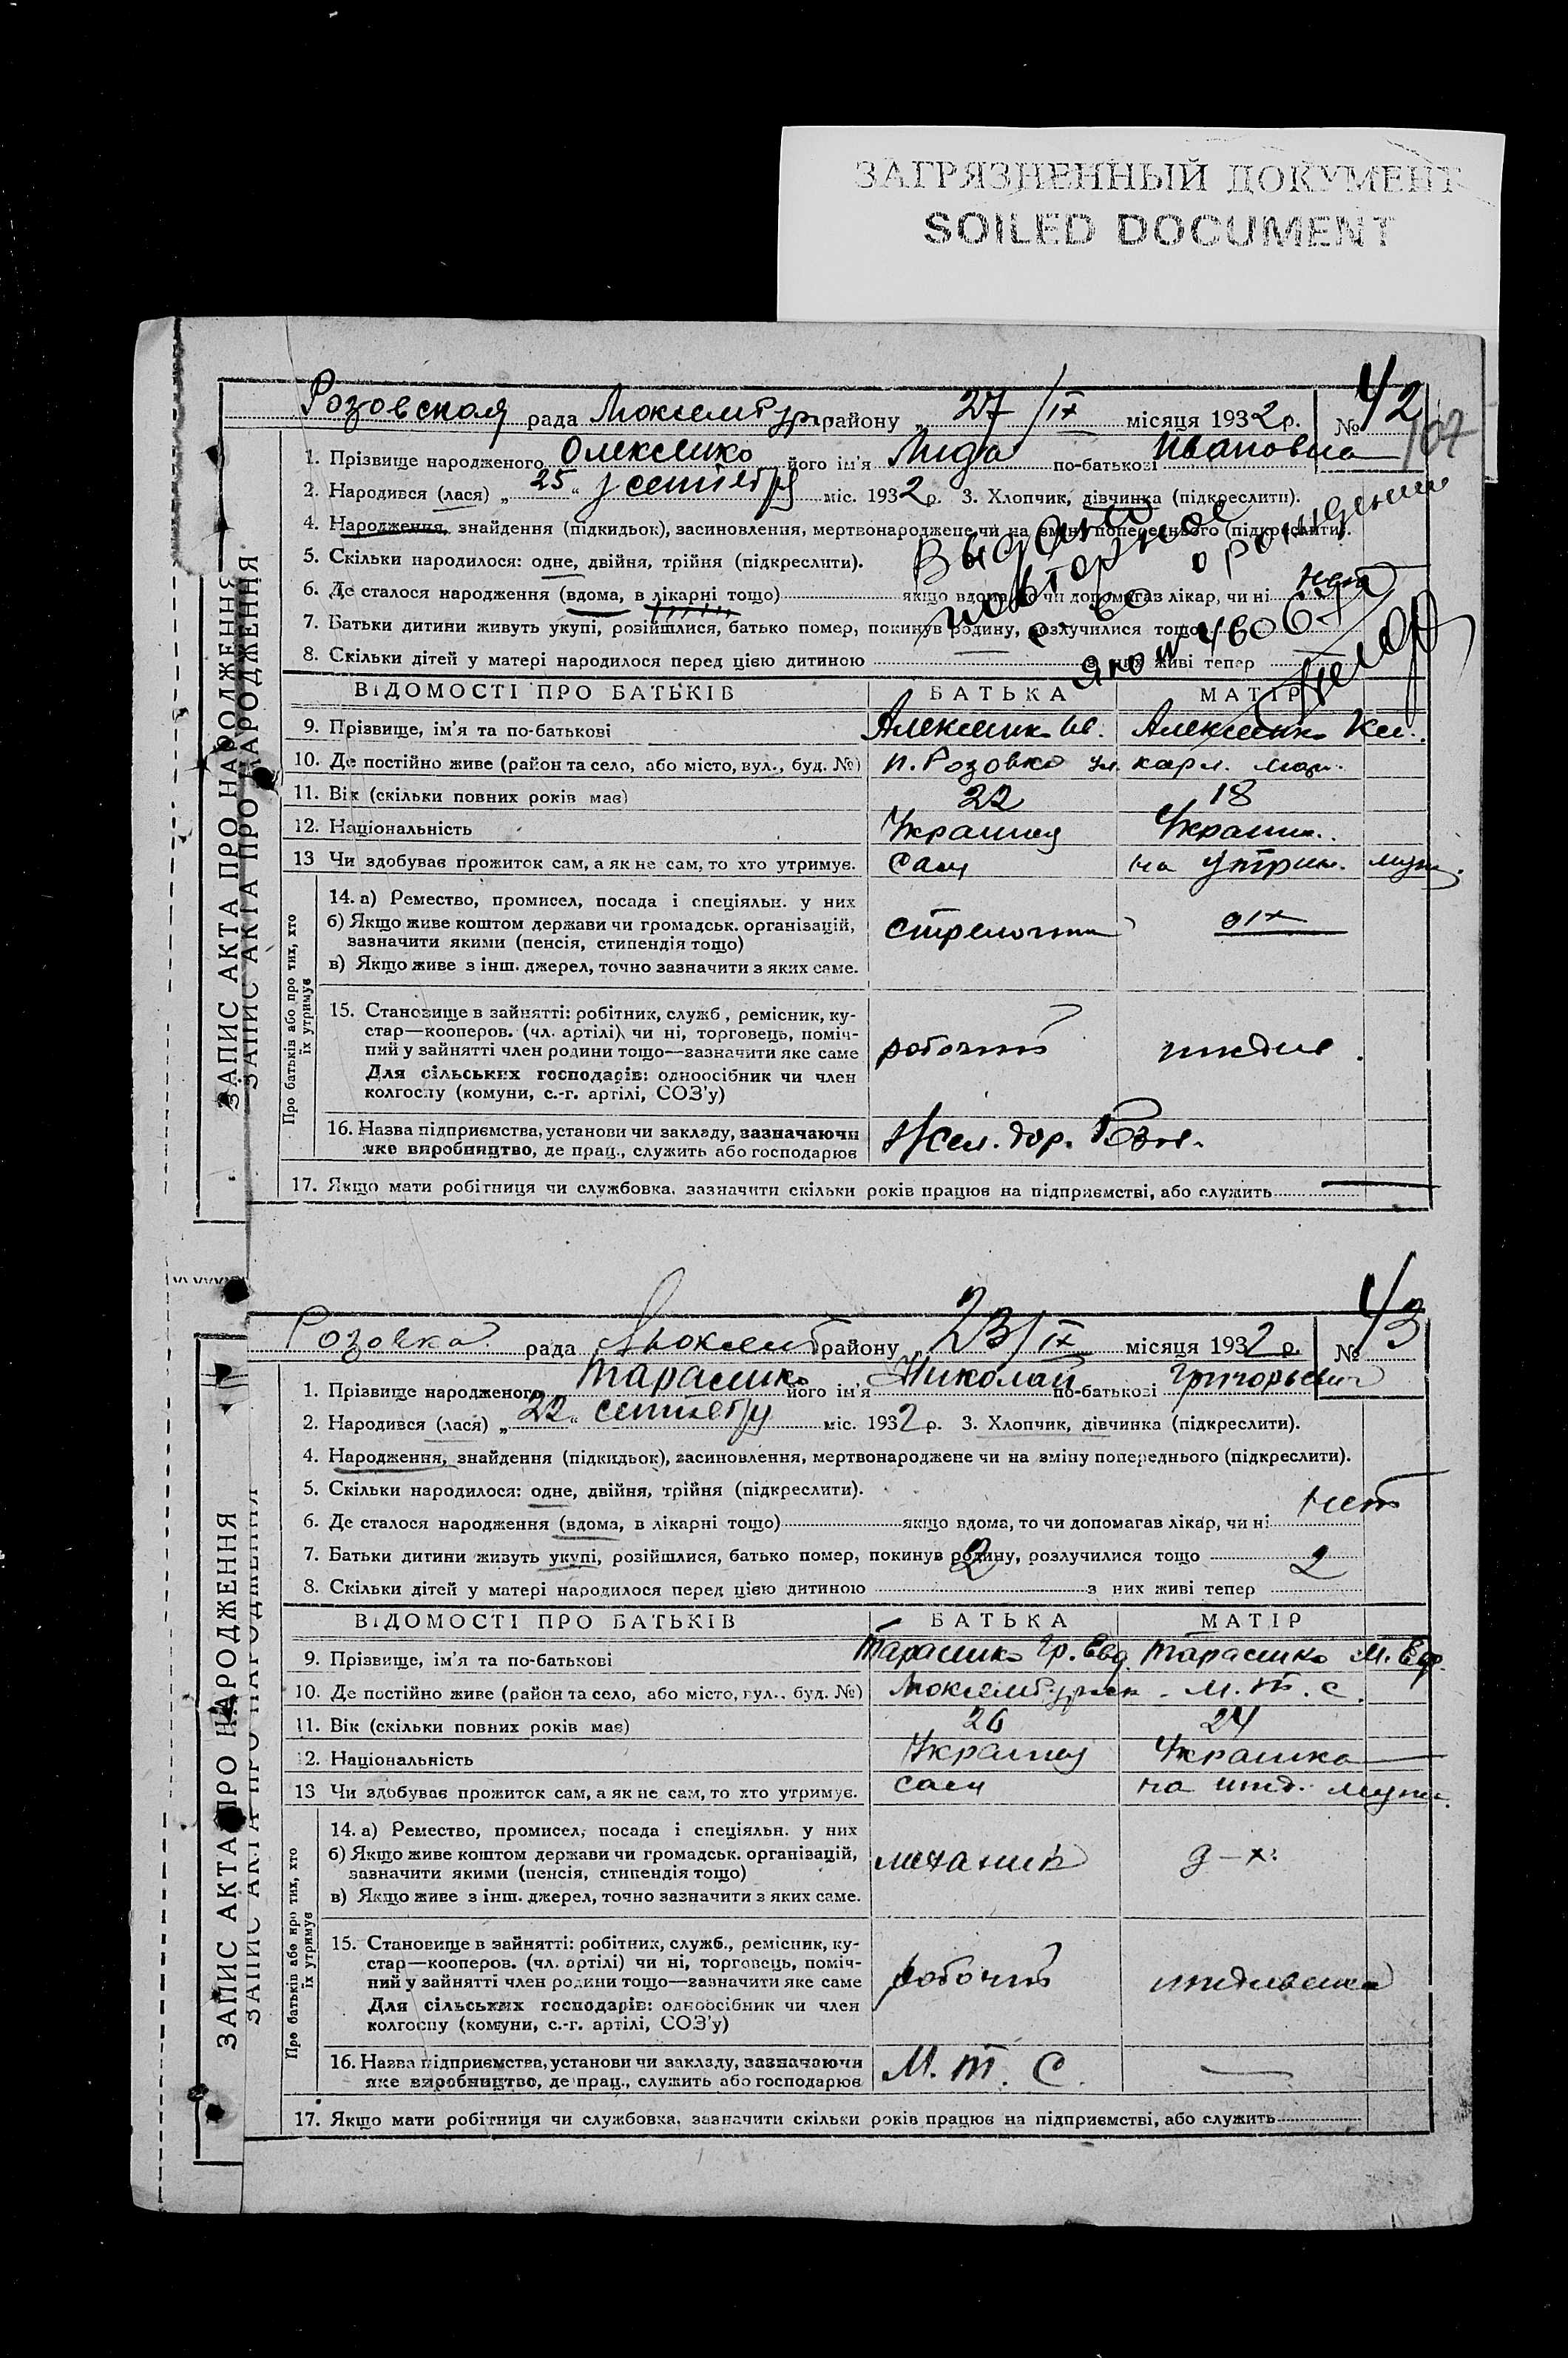 ЗАГРЯЗНЕННЫЙ ДОКУМЕНТ
SOILED DOCUMENT
Розовская рада района „ 27/IX місяця 1932 р. № 42
107
1. Прізвище народженого Олексенко його ім'я Лида по-батькові Ивановна
2. Народився (лася) „ 25 “ сентября міс. 1932 р. 3. Хлопчик, дівчинка (підкреслити).
4. Народження, знайдення (підкидьок), засиновлення, мертвонароджене чи на зміну попереднього (підкреслити).
5. Скільки народилося: одне, двійня, трійня (підкреслити).
6. Де сталося народження (вдома, в лікарні тощо) якщо вдома, то чи допомагав лікар, чи ні нет
7. Батьки дитини живуть укупі, розійшлися, батько помер, покинув родину, розлучилися тощо
8. Скільки дітей у матері народилося перед цією дитиною з них живі тепер
Выдано
повторное
св-во о рождении
ВІДОМОСТІ ПРО БАТЬКІВ БАТЬКА МАТІР
9. Прізвище, ім'я та по-батькові Алексенко Ив. Алексенко
10. Де постійно живе (район та село, або місто, вул., буд. №) п. Розовка ул. карл. мар.
11. Вік (скільки повних років має) 22 18
12. Національність Украинец Украин.
13 Чи здобуває прожиток сам, а як не сам, то хто утримує. сам на утрим. муж.
14. а) Ремество, промисел, посада і спеціяльн. у них
б) Якщо живе коштом держави чи громадськ. організацій, зазначити якими (пенсія, стипендія тощо) стрелочник
в) Якщо живе з інш. джерел, точно зазначити з яких саме.
15. Становище в зайнятті: робітник, служб., ремісник, ку-
стар—кооперов. (чл. артілі) чи ні, торговець, поміч-
ний у зайнятті член родини тощо—зазначити яке саме рабочий иждив.
Для сільських господарів: одноосібник чи член
колгоспу (комуни, с.-г. артілі, СОЗ'у)
16. Назва підприємства, установи чи закладу, зазначаючи
яке виробництво, де прац., служить або господарює Жел. дор.
17. Якщо мати робітниця чи службовка, зазначити скільки років працює на підприємстві, або служить
Про батьків або про тих, хто їх утримує
ЗАПИС АКТА ПРО НАРОДЖЕННЯ
ЗАПИС АКТА ПРО НАРОДЖЕННЯ
Розовка рада району „ 23/IX місяця 1932 р. № 43
1. Прізвище народженого Тарасенко його ім'я Николай по-батькові Григорьевич
2. Народився (лася) „ 22 “ сентября міс. 1932 р. 3. Хлопчик, дівчинка (підкреслити).
4. Народження, знайдення (підкидьок), засиновлення, мертвонароджене чи на зміну попереднього (підкреслити).
5. Скільки народилося: одне, двійня, трійня (підкреслити).
6. Де сталося народження (вдома, в лікарні тощо) якщо вдома, то чи допомагав лікар, чи ні нет
7. Батьки дитини живуть укупі, розійшлися, батько помер, покинув родину, розлучилися тощо
8. Скільки дітей у матері народилося перед цією дитиною 2 з них живі тепер 2
ВІДОМОСТІ ПРО БАТЬКІВ БАТЬКА МАТІР
9. Прізвище, ім'я та по-батькові Тарасенко Гр. Евд. Тарасенко М. Еф.
10. Де постійно живе (район та село, або місто, вул., буд. №) М. Т. С.
11. Вік (скільки повних років має) 26 24
12. Національність Украинец Украинка
13 Чи здобуває прожиток сам, а як не сам, то хто утримує. сам на ижд. мужа.
14. а) Ремество, промисел, посада і спеціяльн. у них
б) Якщо живе коштом держави чи громадськ. організацій, зазначити якими (пенсія, стипендія тощо) механик д-х.
в) Якщо живе з інш. джерел, точно зазначити з яких саме.
15. Становище в зайнятті: робітник, служб., ремісник, ку-
стар—кооперов. (чл. артілі) чи ні, торговець, поміч-
ний у зайнятті член родини тощо—зазначити яке саме рабочий иждивенка
Для сільських господарів: одноосібник чи член
колгоспу (комуни, с.-г. артілі, СОЗ'у)
16. Назва підприємства, установи чи закладу, зазначаючи
яке виробництво, де прац., служить або господарює М. Т. С. —
17. Якщо мати робітниця чи службовка, зазначити скільки років працює на підприємстві, або служить
Про батьків або про тих, хто їх утримує
ЗАПИС АКТА ПРО НАРОДЖЕННЯ
ЗАПИС АКТА ПРО НАРОДЖЕННЯ